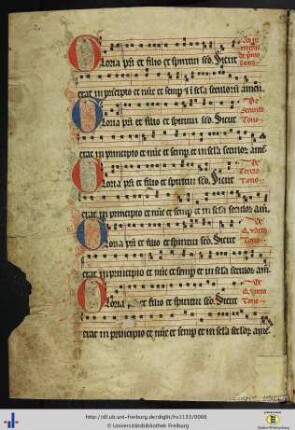 Gloria pri et filio et spiritui sco. Sicut
erat in principio et nūc et semp et in scla seculorū amen.
De
Secundo
Tono
Gloria pri et filio et spiritui sco. Sicut
erat in principio et nūc et semp et in scla seculor amē.
De
Tercio
Tono
Gloria pri et filio et spiritui sco. Sicut
erat in principio et nūc et semp et in scla seculor am̄.
De
Tono
Gloria pri et filio et spiritui sco. Sicut
erat in principio et nūc et semp et in scla seculor amē.
De
Tono
Gloria et filio et spiritui sco. Sicut
erat in principio et nūc et semp et in scla seclor amē.
http://dl.ub.uni-freiburg.de/diglit/hs1133/0086
© Universitätsbibliothek Freiburg